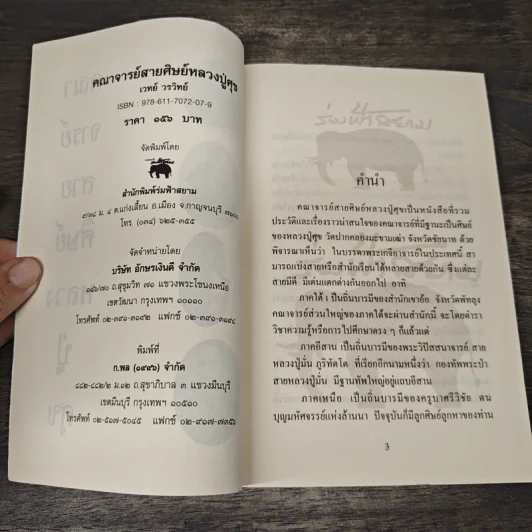 คณาจารย์สายศิษย์หลวงปู่ศุข
เวทย์ วรวิทย์
ISBN : 978-611-7072-07-9
ราคา ๑๕๖ บาท
จัดพิมพ์โดย
สำนักพิมพ์ร่มฟ้าสยาม
๙/๓๔ ม. ๔ ต.แก่งเสี้ยน อ.เมือง จ.กาญจนบุรี ๗๑๐๐๐
โทร. (๐๓๔) ๖๒๕-๓๕๕
จัดจำหน่ายโดย
บริษัท อักษรเงินดี จำกัด
๑๔๖/๗๐ ถ.สุขุมวิท ๗๗ แขวงพระโขนงเหนือ
เขตวัฒนา กรุงเทพฯ ๑๐๑๑๐
โทรศัพท์ ๐๒-๓๙๑-๓๑๙๒ แฟกซ์ ๐๒-๓๙๑-๓๑๙๔
พิมพ์ที่
ก.พล (๑๙๙๖) จำกัด
๔๘๒-๔๘๒/๒ ม.๑๒ ถ.สุขาภิบาล ๓ แขวงมีนบุรี
เขตมีนบุรี กรุงเทพฯ ๑๐๕๑๐
โทรศัพท์ ๐๒-๕๑๗-๕๐๔๕ แฟกซ์ ๐๒-๙๑๗-๗๓๕๖
ร่มฟ้าสยาม
คำนำ
คณาจารย์สายศิษย์หลวงปู่ศุขเป็นหนังสือที่รวม
ประวัติและเรื่องราวน่าสนใจของคณาจารย์ที่มีฐานะเป็นศิษย์
ของหลวงปู่ศุข วัดปากคลองมะขามเฒ่า จังหวัดชัยนาท ด้วย
พิจารณาเห็นว่า ในบรรดาพระเกจิอาจารย์ในประเทศนี้ สา
มารถแบ่งสายหรือสำนักเรียนได้หลายสายด้วยกัน ซึ่งแต่ละ
สายมีดี มีเด่นแตกต่างกันออกไป อาทิ
ภาคใต้ เป็นถิ่นบารมีของสำนักเขาอ้อ จังหวัดพัทลุง
คณาจารย์ส่วนใหญ่ของภาคใต้จะผ่านสำนักนี้ จะโดยตำรา
วิชาความรู้หรือการไปศึกษาตรง ๆ ก็แล้วแต่
ภาคอีสาน เป็นถิ่นบารมีของพระวิปัสสนาจารย์ สาย
หลวงปู่มั่น ภูริทัตโต ที่เรียกอีกนามหนึ่งว่า กองทัพพระป่า
สายหลวงปู่มั่น มีฐานทัพใหญ่อยู่แถบอีสาน
ภาคเหนือ เป็นถิ่นบารมีของครูบาศรีวิชัย ตน
บุญมหัศจรรย์แห่งล้านนา ปัจจุบันก็มีลูกศิษย์ลูกหาของท่าน
3